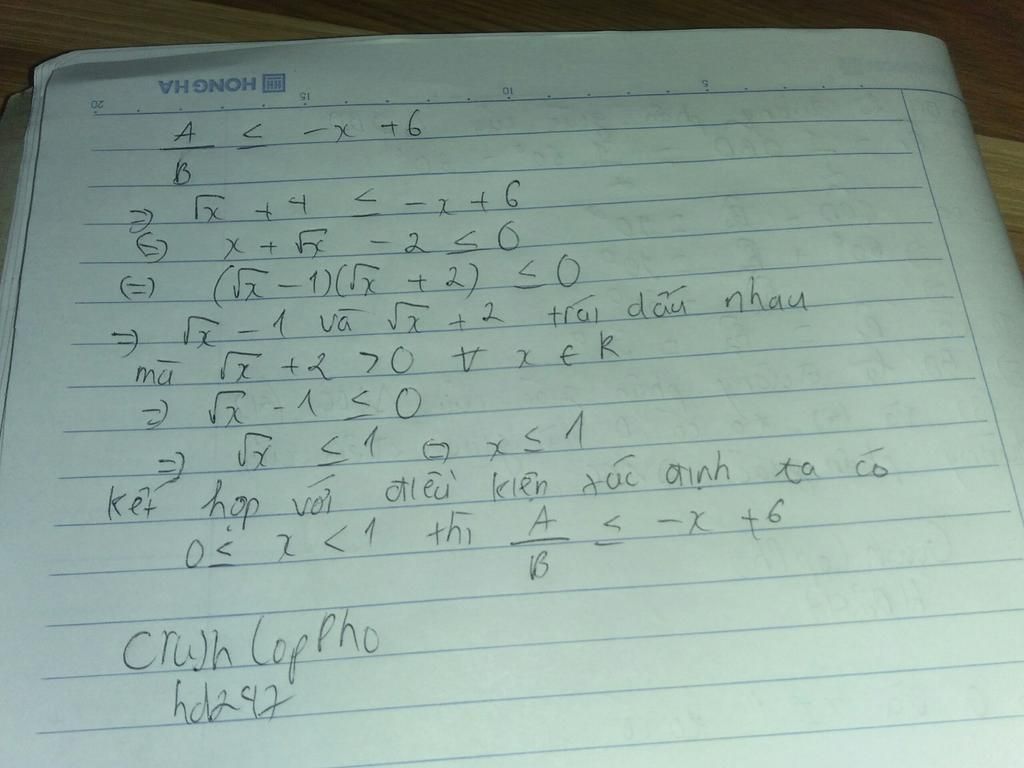 HONG HA
20 15 10 5
A/B ≤ -x + 6
=> √x + 4 ≤ -x + 6
(=) x + √x - 2 ≤ 0
(=) (√x - 1)(√x + 2) ≤ 0
=> √x - 1 và √x + 2 trái dấu nhau
mà √x + 2 > 0 ∀ x ∈ R
=> √x - 1 ≤ 0
=> √x ≤ 1 (=) x ≤ 1
Kết hợp với điều kiện xác định ta có
0 ≤ x < 1 thì A/B ≤ -x + 6
Crush lop Pho
hd247